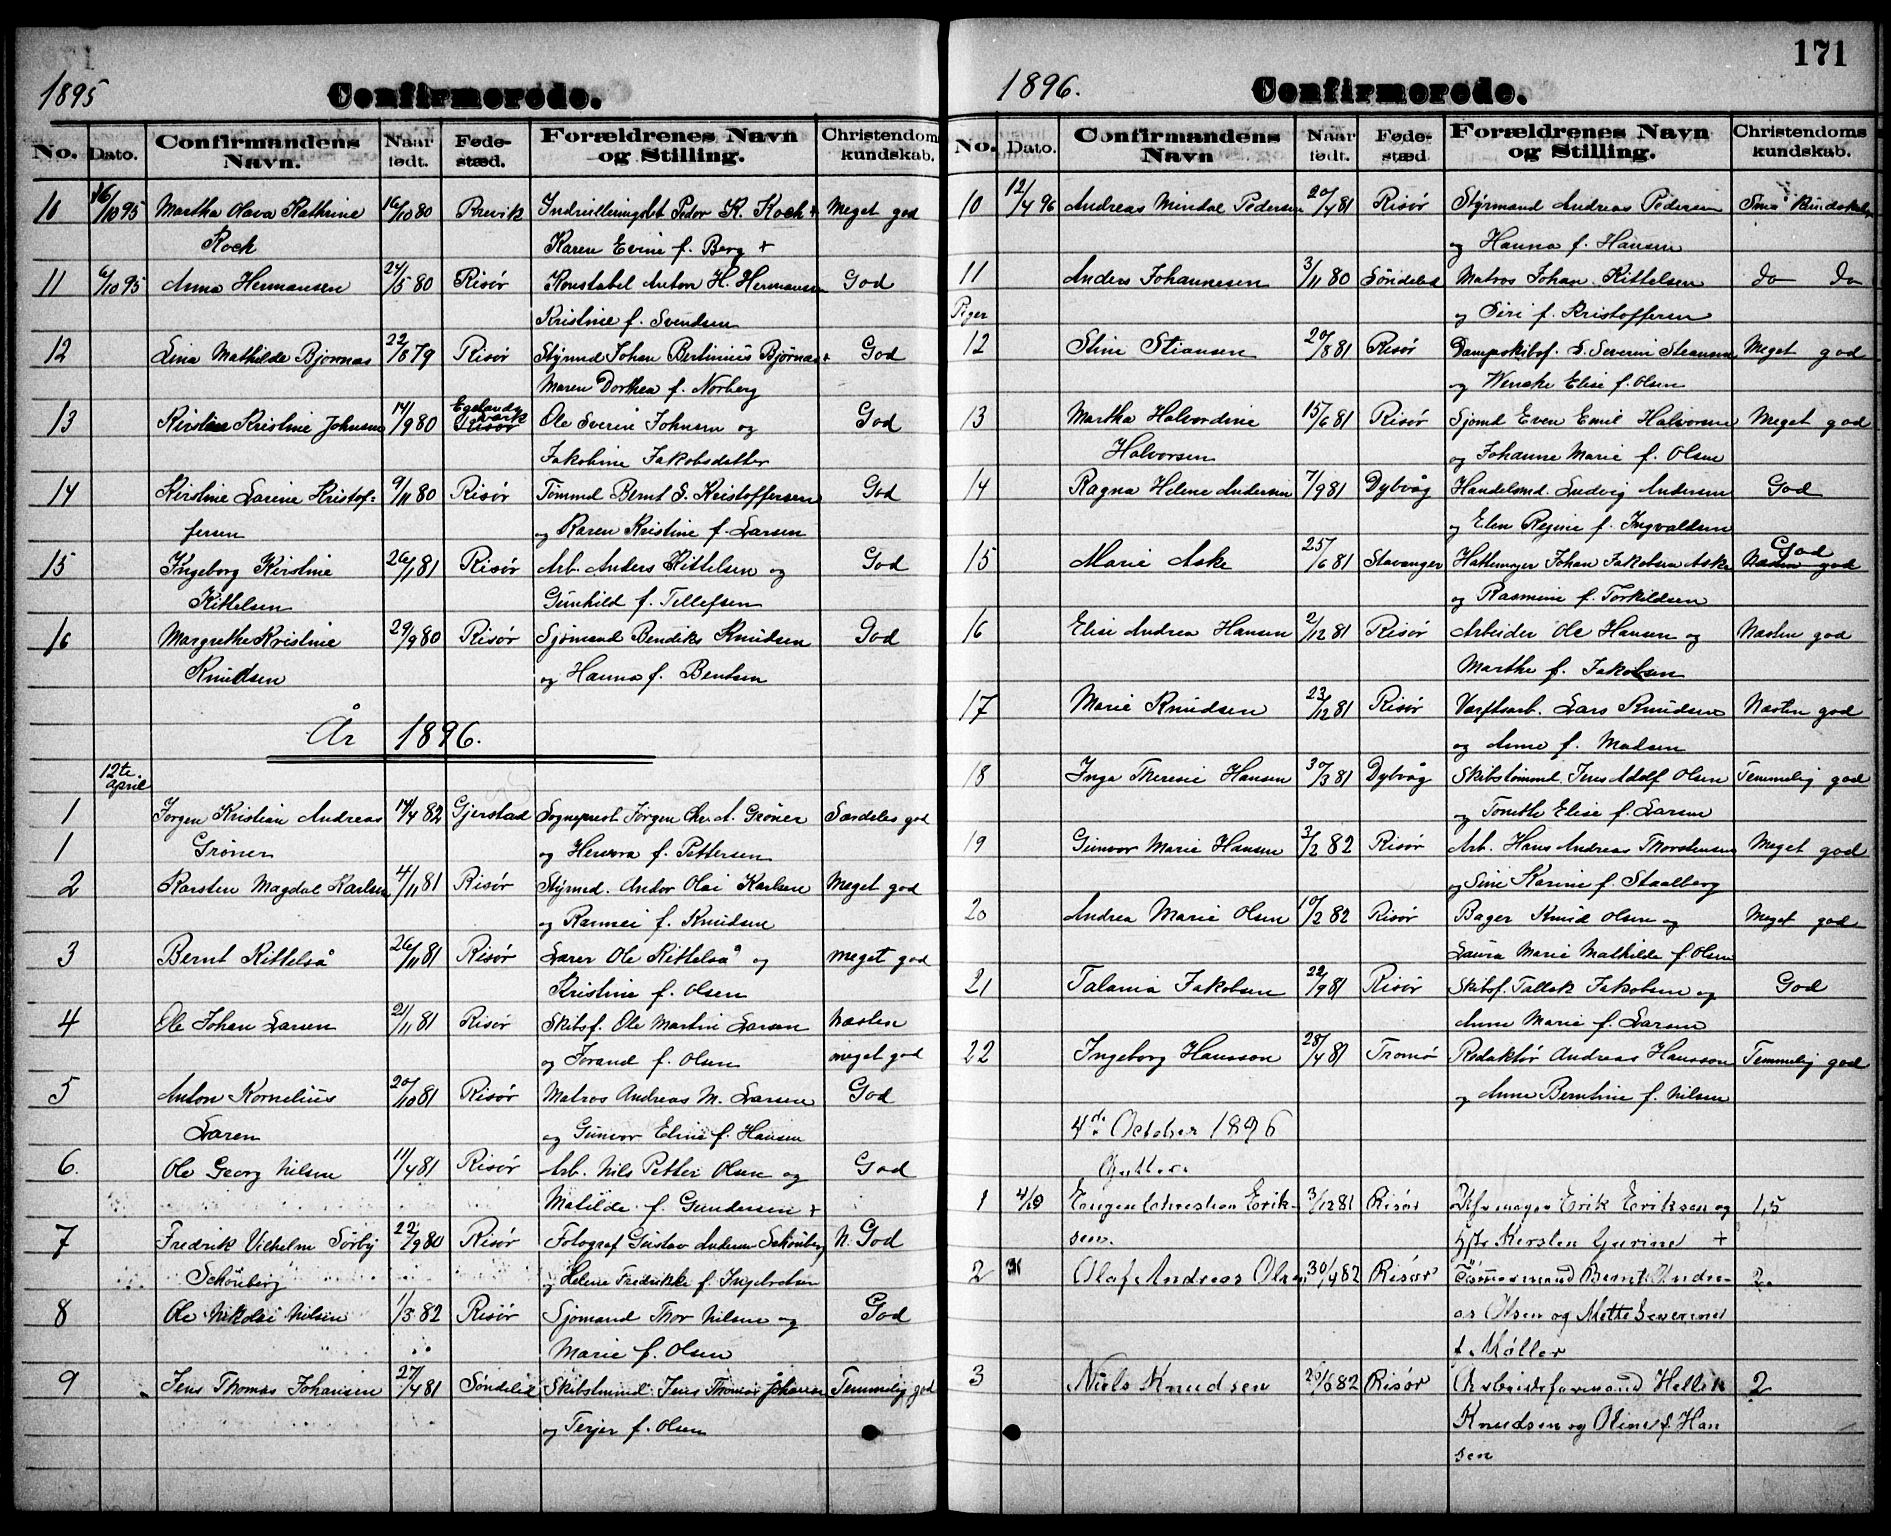 1895 Confirmerede.
No. Dato. Confirmandens Navn. Naar født. Føde-stæd. Forældrenes Navn og Stilling. Christendoms kundskab.
10 16/10 95 Martha Olava Kathrine 16/10 80 Brevik Peder K. Koch + Meget god
Koch Karen Evine f. Berg +
11 6/10 95 Anna Hermansen 24/5 80 Risør Konstabel Anton H. Hermansen God
Kristine f. Svendsen
12 Lina Mathilde Bjørnas 22/8 79 Risør Styrmd Johan Bertinius Bjørnas + God
Maren Dorthea f. Norberg
13 Kirstine Kristine Johnsen 14/9 80 Egelands værk Risør Ole Severin Johnsen og God
Jakobine Jakobsdatter
14 Kirstine Larine Kristof- 9/11 80 Risør Tømmd Bernt S. Kristoffersen God
fersen og Karen Kristine f. Larsen
15 Ingeborg Kirstine 26/1 81 Risør Arb. Anders Kittelsen og God
Kittelsen Gunhild f. Tellefsen
16 Margrethe Kristine 29/9 80 Risør Sjømand Bendiks Knudsen God
Knudsen og Hanna f. Bentsen
År 1896.
12te April
1 Jørgen Kristian Andreas 14/4 82 Gjerstad Sogneprest Jørgen Chr. A. Grøner Særdeles god
1 Grøner og Henvora f. Pettersen
2 Karsten Magdal Karlsen 4/11 81 Risør Styrmd. Andor Olai Karlsen Meget god
og Rannei f. Knudsen
3 Bernt Kittelså 26/11 81 Risør Lærer Ole Kittelså og meget god
Kristine f. Olsen
4 Ole Johan Larsen 21/11 81 Risør Skibsf. Ole Martin Larsen Næsten
og Torand f. Olsen meget god
5 Anton Kornelius 20/10 81 Risør Matros Andreas M. Larsen God
Laren og Gunvor Eline f. Hansen
6. Ole Georg Nilsen 11/4 81 Risør Arb. Nils Petter Olsen og God
Matilde f. Gundersen +
7 Fredrik Vilhelm Sørby 22/9 80 Risør Fotograf Gustav Andersen Schønberg N. God
Schönberg og Helene Fredrikke f. Ingebretsen
8 Ole Nikolai Nilsen 1/3 82 Risør Sjømand Thor Nilsen og God
Marie f. Olsen
9 Jens Thomas Johansen 27/4 81 Søndeled Skibstmmd. Jens Thomas Johansen Temmelig god
og Terjer f. Olsen
1896. Confirmerede. 171
No. Dato. Confirmandens Navn Naar født. Føde-stæd Forældrenes Navn og Stilling. Christendoms kundskab.
10 12/4 96 Andreas Mindal Pedersen 20/4 81 Risør Styrmand Andreas Pedersen Små Kundskaber
og Hanna f. Hansen
11 Anders Johannesen 3/11 80 Søndeled Matros Johan Kittelsen do do
Piger og Siri f. Kristoffersen
12 Stine Stiansen 20/8 81 Risør Dampskibsf. S. Severin Steansen Meget god
og Wencke Elise f. Olsen
13 Martha Halvordine 15/6 81 Risør Sjømd Even Emil Halvorsen Meget god
Halvorsen og Johanne Marie f. Olsen
14 Ragna Helene Andersen 7/9 81 Dybvåg Handelsmd. Ludvig Andersen God
og Elen Regine f. Ingvaldsen
15 Marie Aske 25/6 81 Stavanger Hattemager Johan Jakobsen Aske God Næsten god
og Rasmine f. Torkildsen
16 Elise Andrea Hansen 2/12 81 Risør Arbeider Ole Hansen og Næsten god
Marthe f. Jakobsen
17 Marie Knudsen 23/12 81 Risør Værftsarb. Lars Knudsen Næsten god
og Anne f. Madsen
18 Inga Theresie Hansen 30/3 81 Dybvåg Skibstømmd. Jens Adolf Olsen Temmelig god
og Tomthe Elise f. Larsen
19 Gunvor Marie Hansen 3/2 82 Risør Arb. Hans Andreas Thorstensen Meget god
og Sine Karine f. Staalberg
20 Andrea Marie Olsen 10/2 82 Risør Bager Knud Olsen og Meget god
Laura Marie Mathilde f. Olsen
21 Talania Jakobsen 22/9 81 Risør Skibsf. Tallak Jakobsen og God
Anne Marie f. Larsen
22 Ingeborg Hansson 28/4 81 Tromø Redaktør Andreas Hansson Temmelig god
og Anne Berntine f. Nilsen
4de October 1896
Gutter.
1 4/10 Eugen Christian Erik- 3/12 81 Risør Erik Eriksen og 1,5
sen. Kersten Gurine +
2 Olaf Andreas Olsen 30/4 82 Risør Tømmermand Bernt Andre- 2.
as Olsen og Mette Severine
f. Møller
3 Niels Knudsen 26/6 82 Risør Arbeidsformand Helle K 2
Knudsen og Oline f. Han
sen